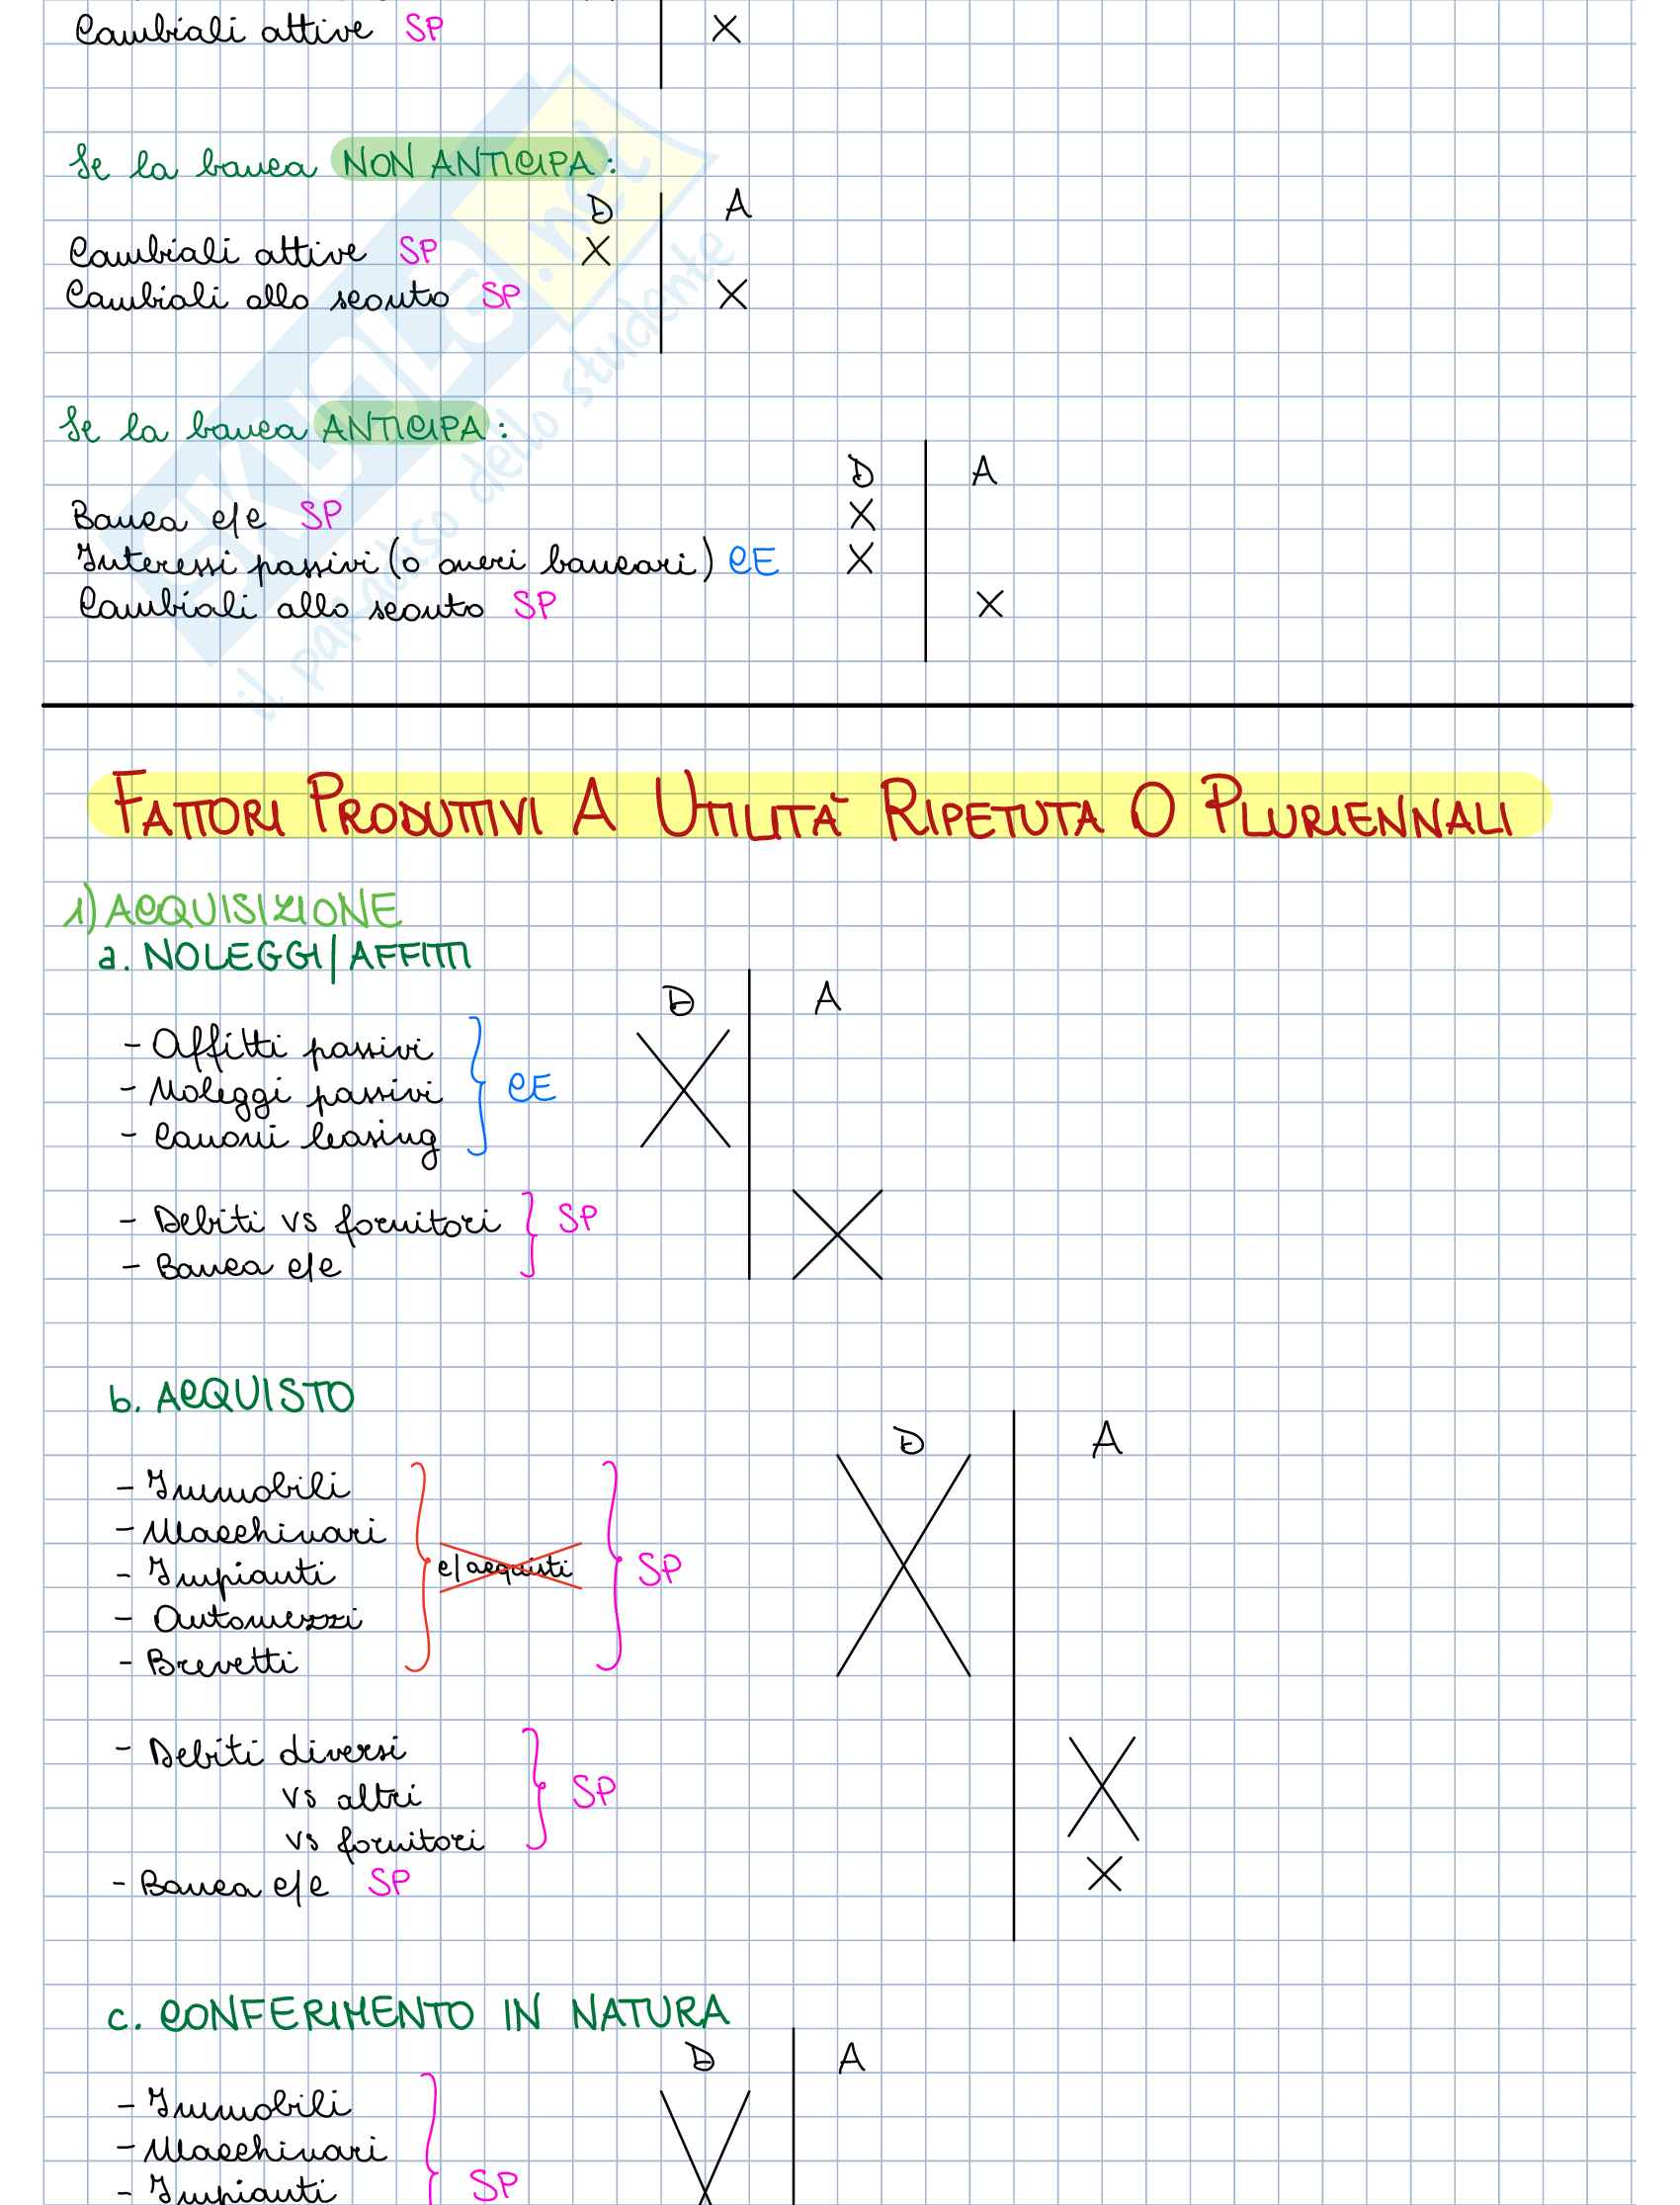 Cambiali attive SP X
Se la banca NON ANTICIPA:
D A
Cambiali attive SP X
Cambiali allo sconto SP X
Se la banca ANTICIPA:
D A
Banca c/c SP X
Interessi passivi (o oneri bancari) CE X
Cambiali allo sconto SP X
FATTORI PRODUTTIVI A UTILITÀ RIPETUTA O PLURIENNALI
1) ACQUISIZIONE
a. NOLEGGI/AFFITTI
D A
- Affitti passivi
- Noleggi passivi CE X
- Canoni leasing
- Debiti vs fornitori SP X
- Banca c/c
b. ACQUISTO
D A
- Immobili
- Macchinari
- Impianti c/acquisti SP X
- Automezzi
- Brevetti
- Debiti diversi
vs altri SP X
vs fornitori
- Banca c/c SP X
c. CONFERIMENTO IN NATURA
D A
- Immobili
- Macchinari
- Impianti SP X
SKUOLA.net
il paradiso dello studente